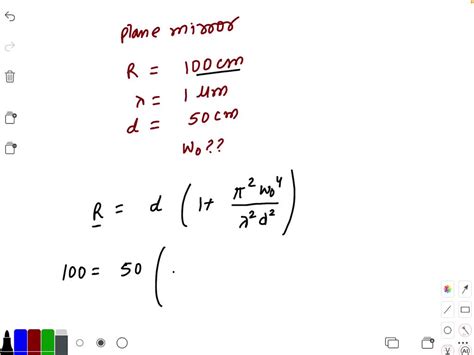 plane mirror
R = 100 cm
λ = 1 μm
d = 50 cm
W₀??
R = d (1+ π²W₀⁴/λ²d²)
100 = 50 (
AI